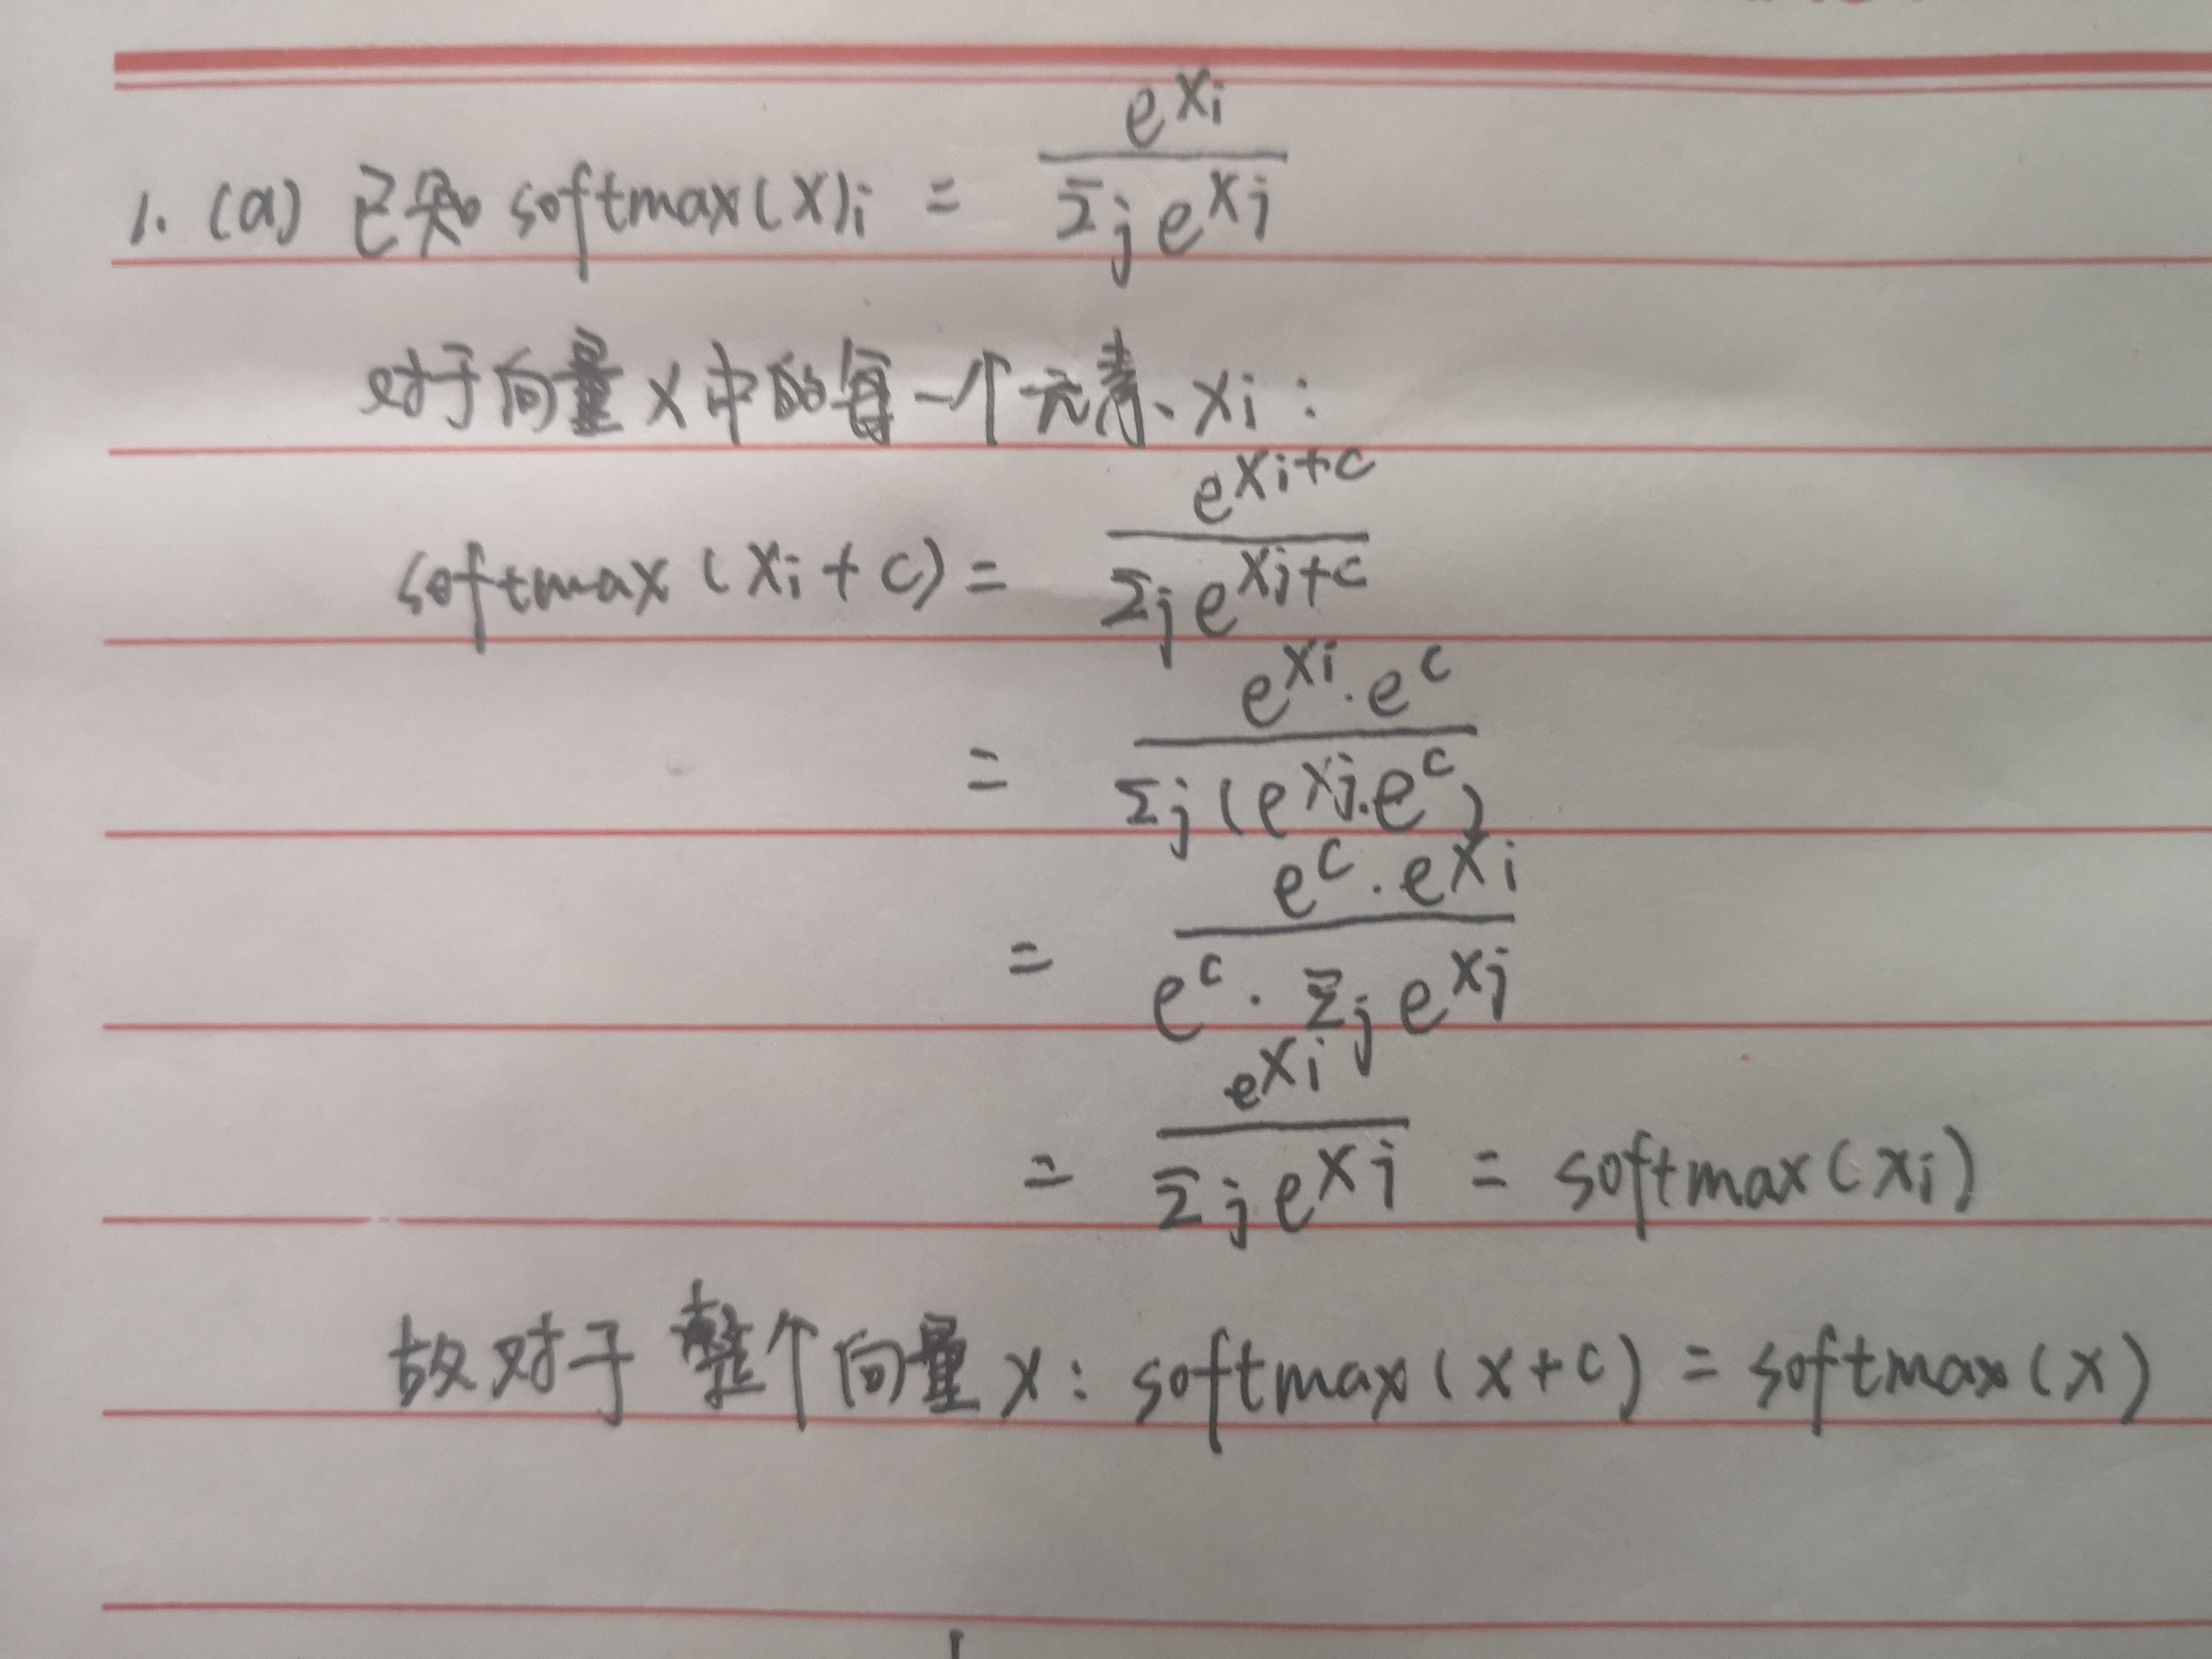 1. (a) 已知 softmax(x)i = e^xi / Σj e^xj
对于向量 x 中的每一个元素、xi :
softmax (xi + c) = e^xi+c / Σj e^xj+c
= e^xi · e^c / Σj (e^xj · e^c)
= e^c · e^xi / e^c · Σj e^xj
= e^xi / Σj e^xj = softmax(xi)
故对于整个向量 x : softmax(x+c) = softmax(x)